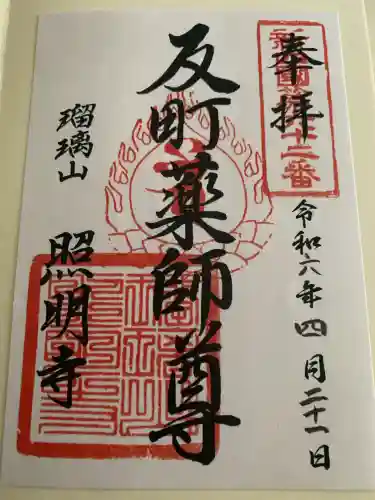 奉拝
令和六年四月二十一日
反町薬師尊
瑠璃山
照明寺